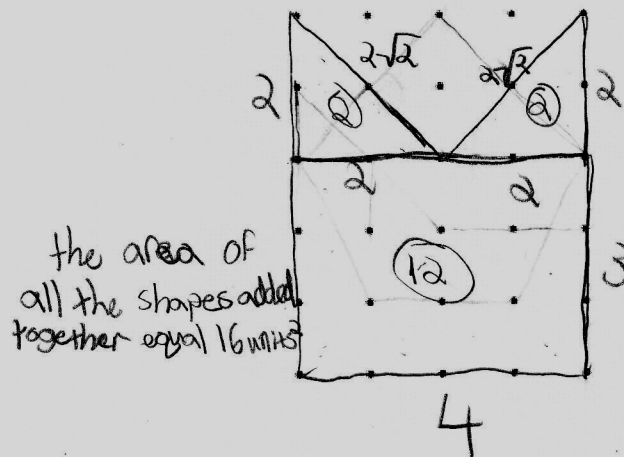 2√2
2√2
2
2
2
2
2
2
the area of
12
3
all the shapes added
together equal 16 units²
4